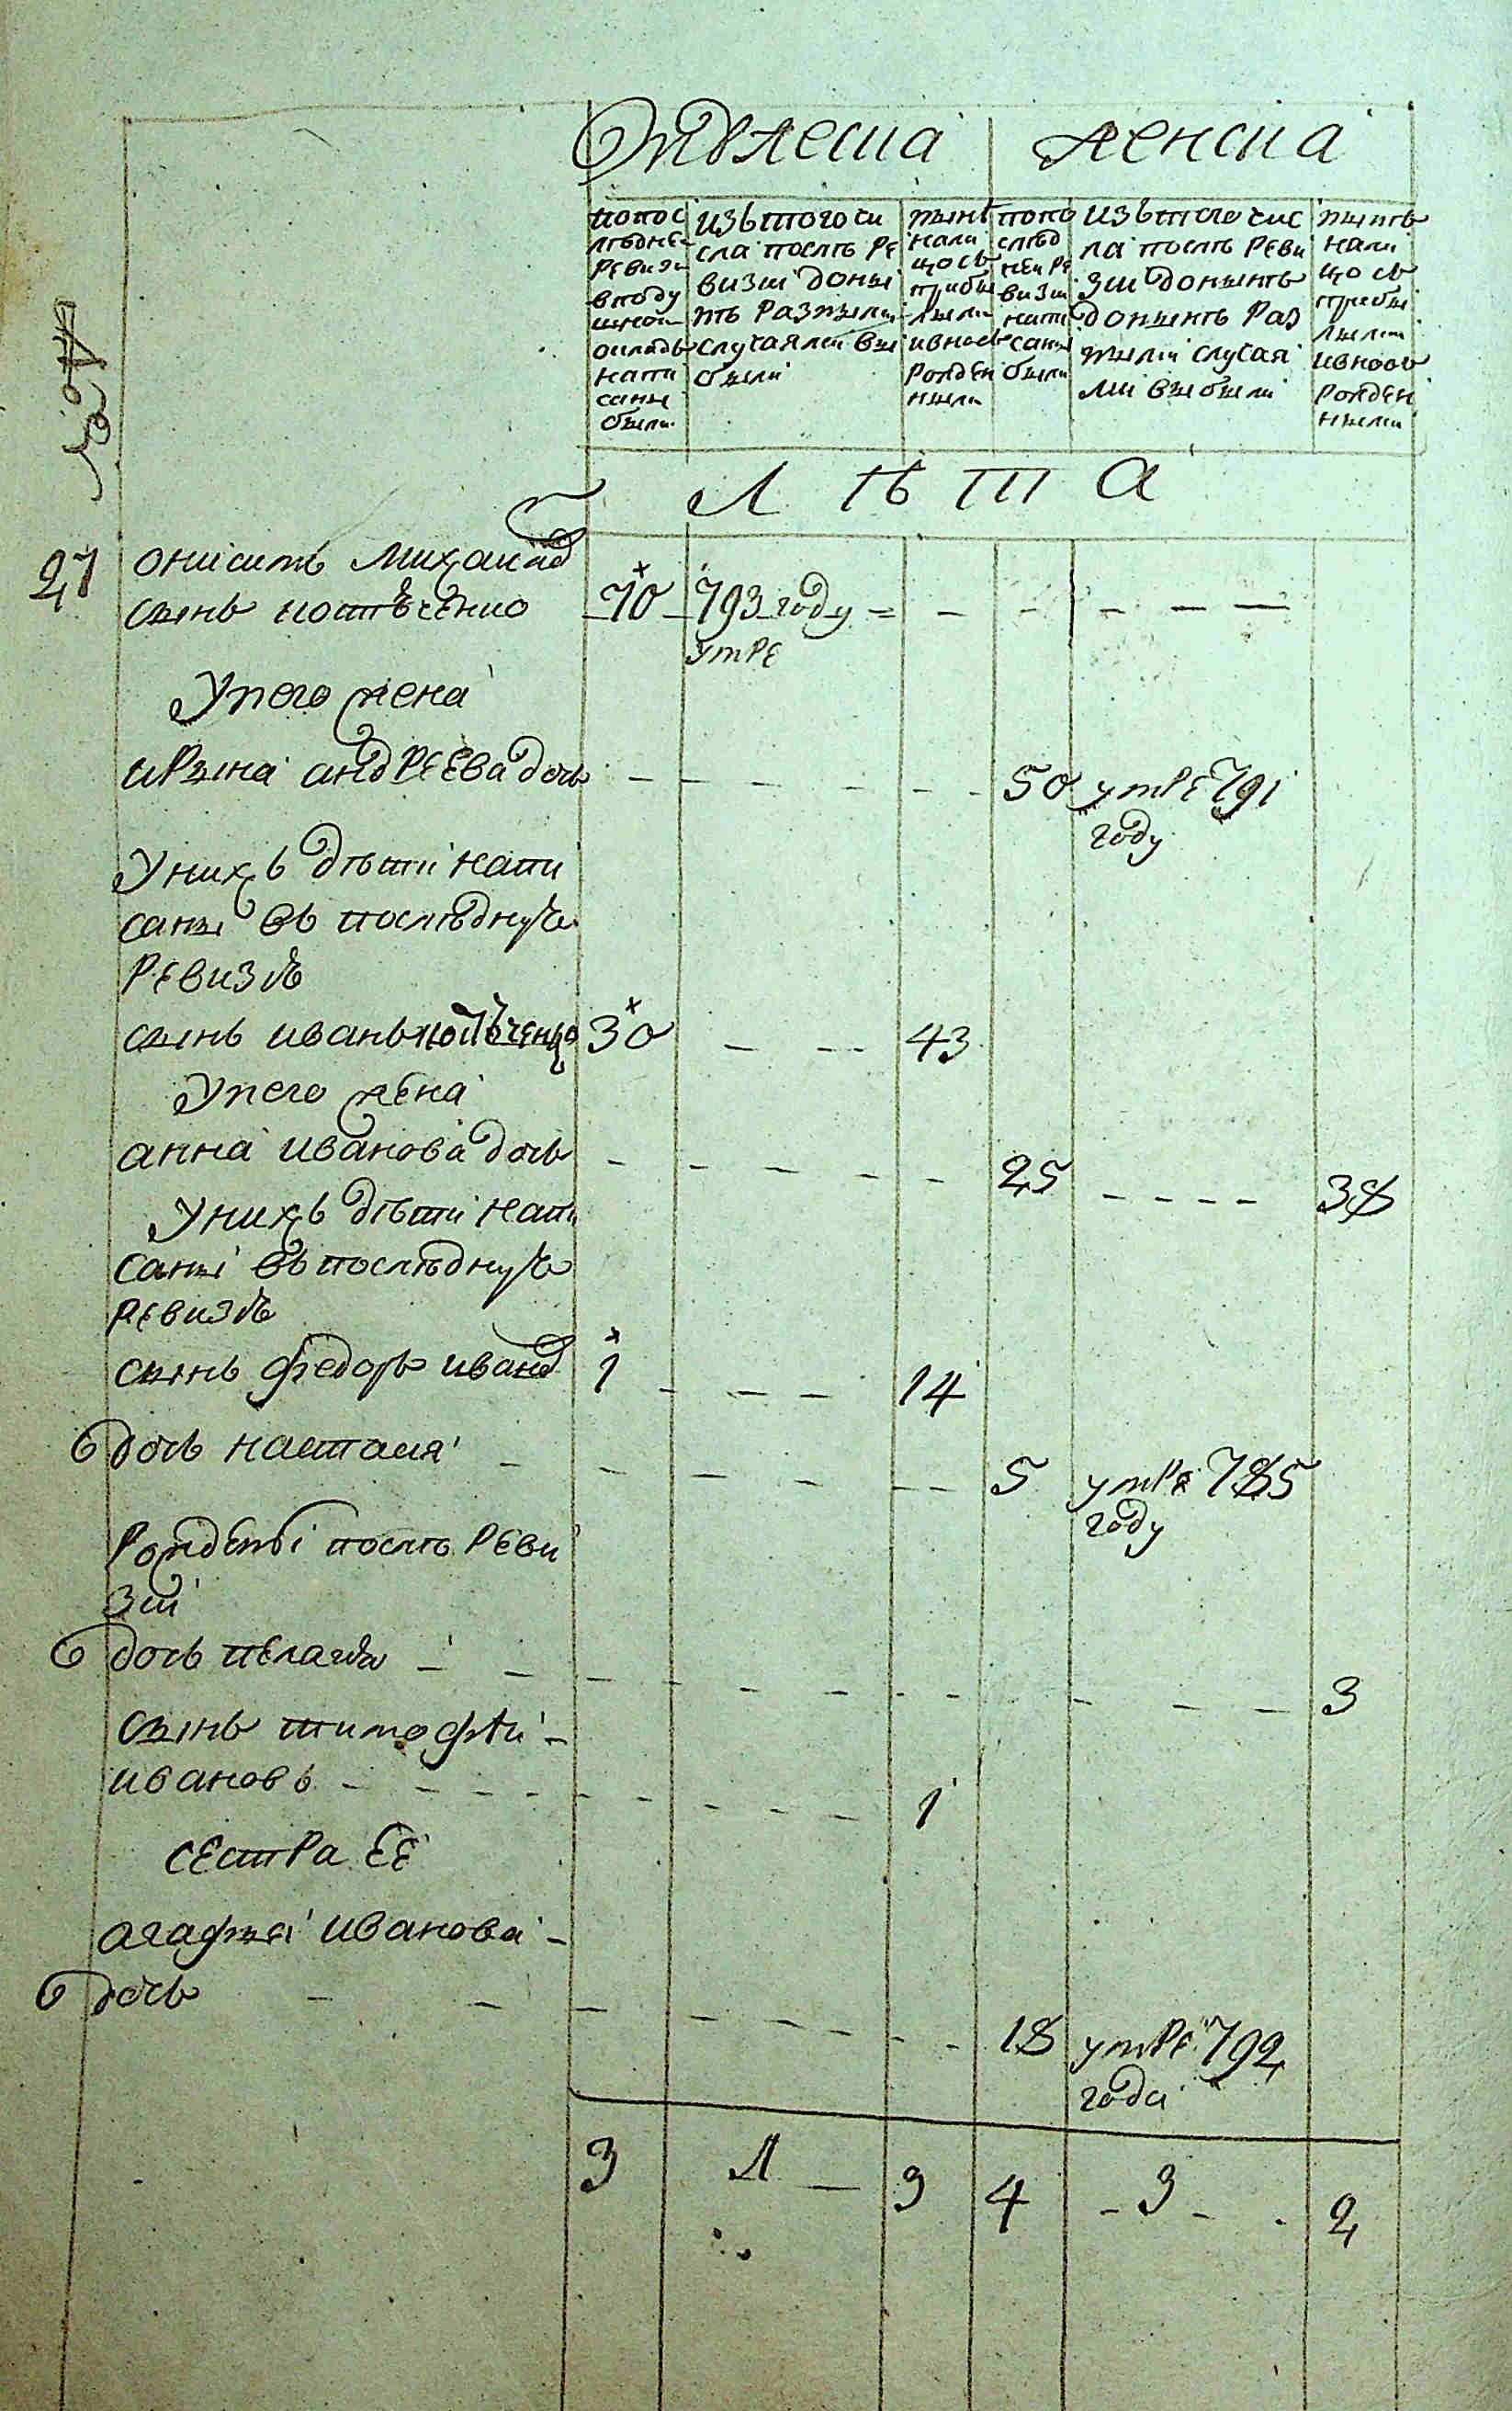 № Дво
Мужеска женска
попос
лѣдней
ревизи
вподу
шной
окладъ
напи
саны
были
изътогочи
сла послѣ ре
визіи доны
нѣ разными
случаями вы
были
нынѣ
нали
цо съ
прибы
лыми
ивновь
рожден
ными
попо
слѣд
ней ре
визіи
напи
саны
были
изътого чис
ла послѣ реви
зіи донынѣ
донынѣ раз
ными случая
ми выбыли
нынѣ
нали
цо съ
прибы
лыми
ивновь
рожден
ными
Л Ѣ Т А
27 онисимъ михаилов
сынъ потѣченко 70 793 году = - - - - -
умре
Унего жена
ирына андреева дочь - - - - - - 50 умре 791
году
Унихъ дѣти напи
саны въ последную
ревизию
сынъ иванъ потѣченко 30 - - - 43
Унего жена
анна иванова дочь - - - - - 25 - - - - 38
Унихъ дѣти напи
саны въ последную
ревизию
сынъ федоръ иванов 1 - - - - 14
дочь наталия - - - - - - 5 умре 785
году
Рождены послѣ реви
зіи
дочь пелагия - - - - - - - - - - - 3
сынъ тимофѣи -
ивановъ - - - - - - - - 1
сестра ее
агафия иванова -
дочь - - - - - - - - - 18 умре 792
года
3 1 - 3 4 - 3 - - 2